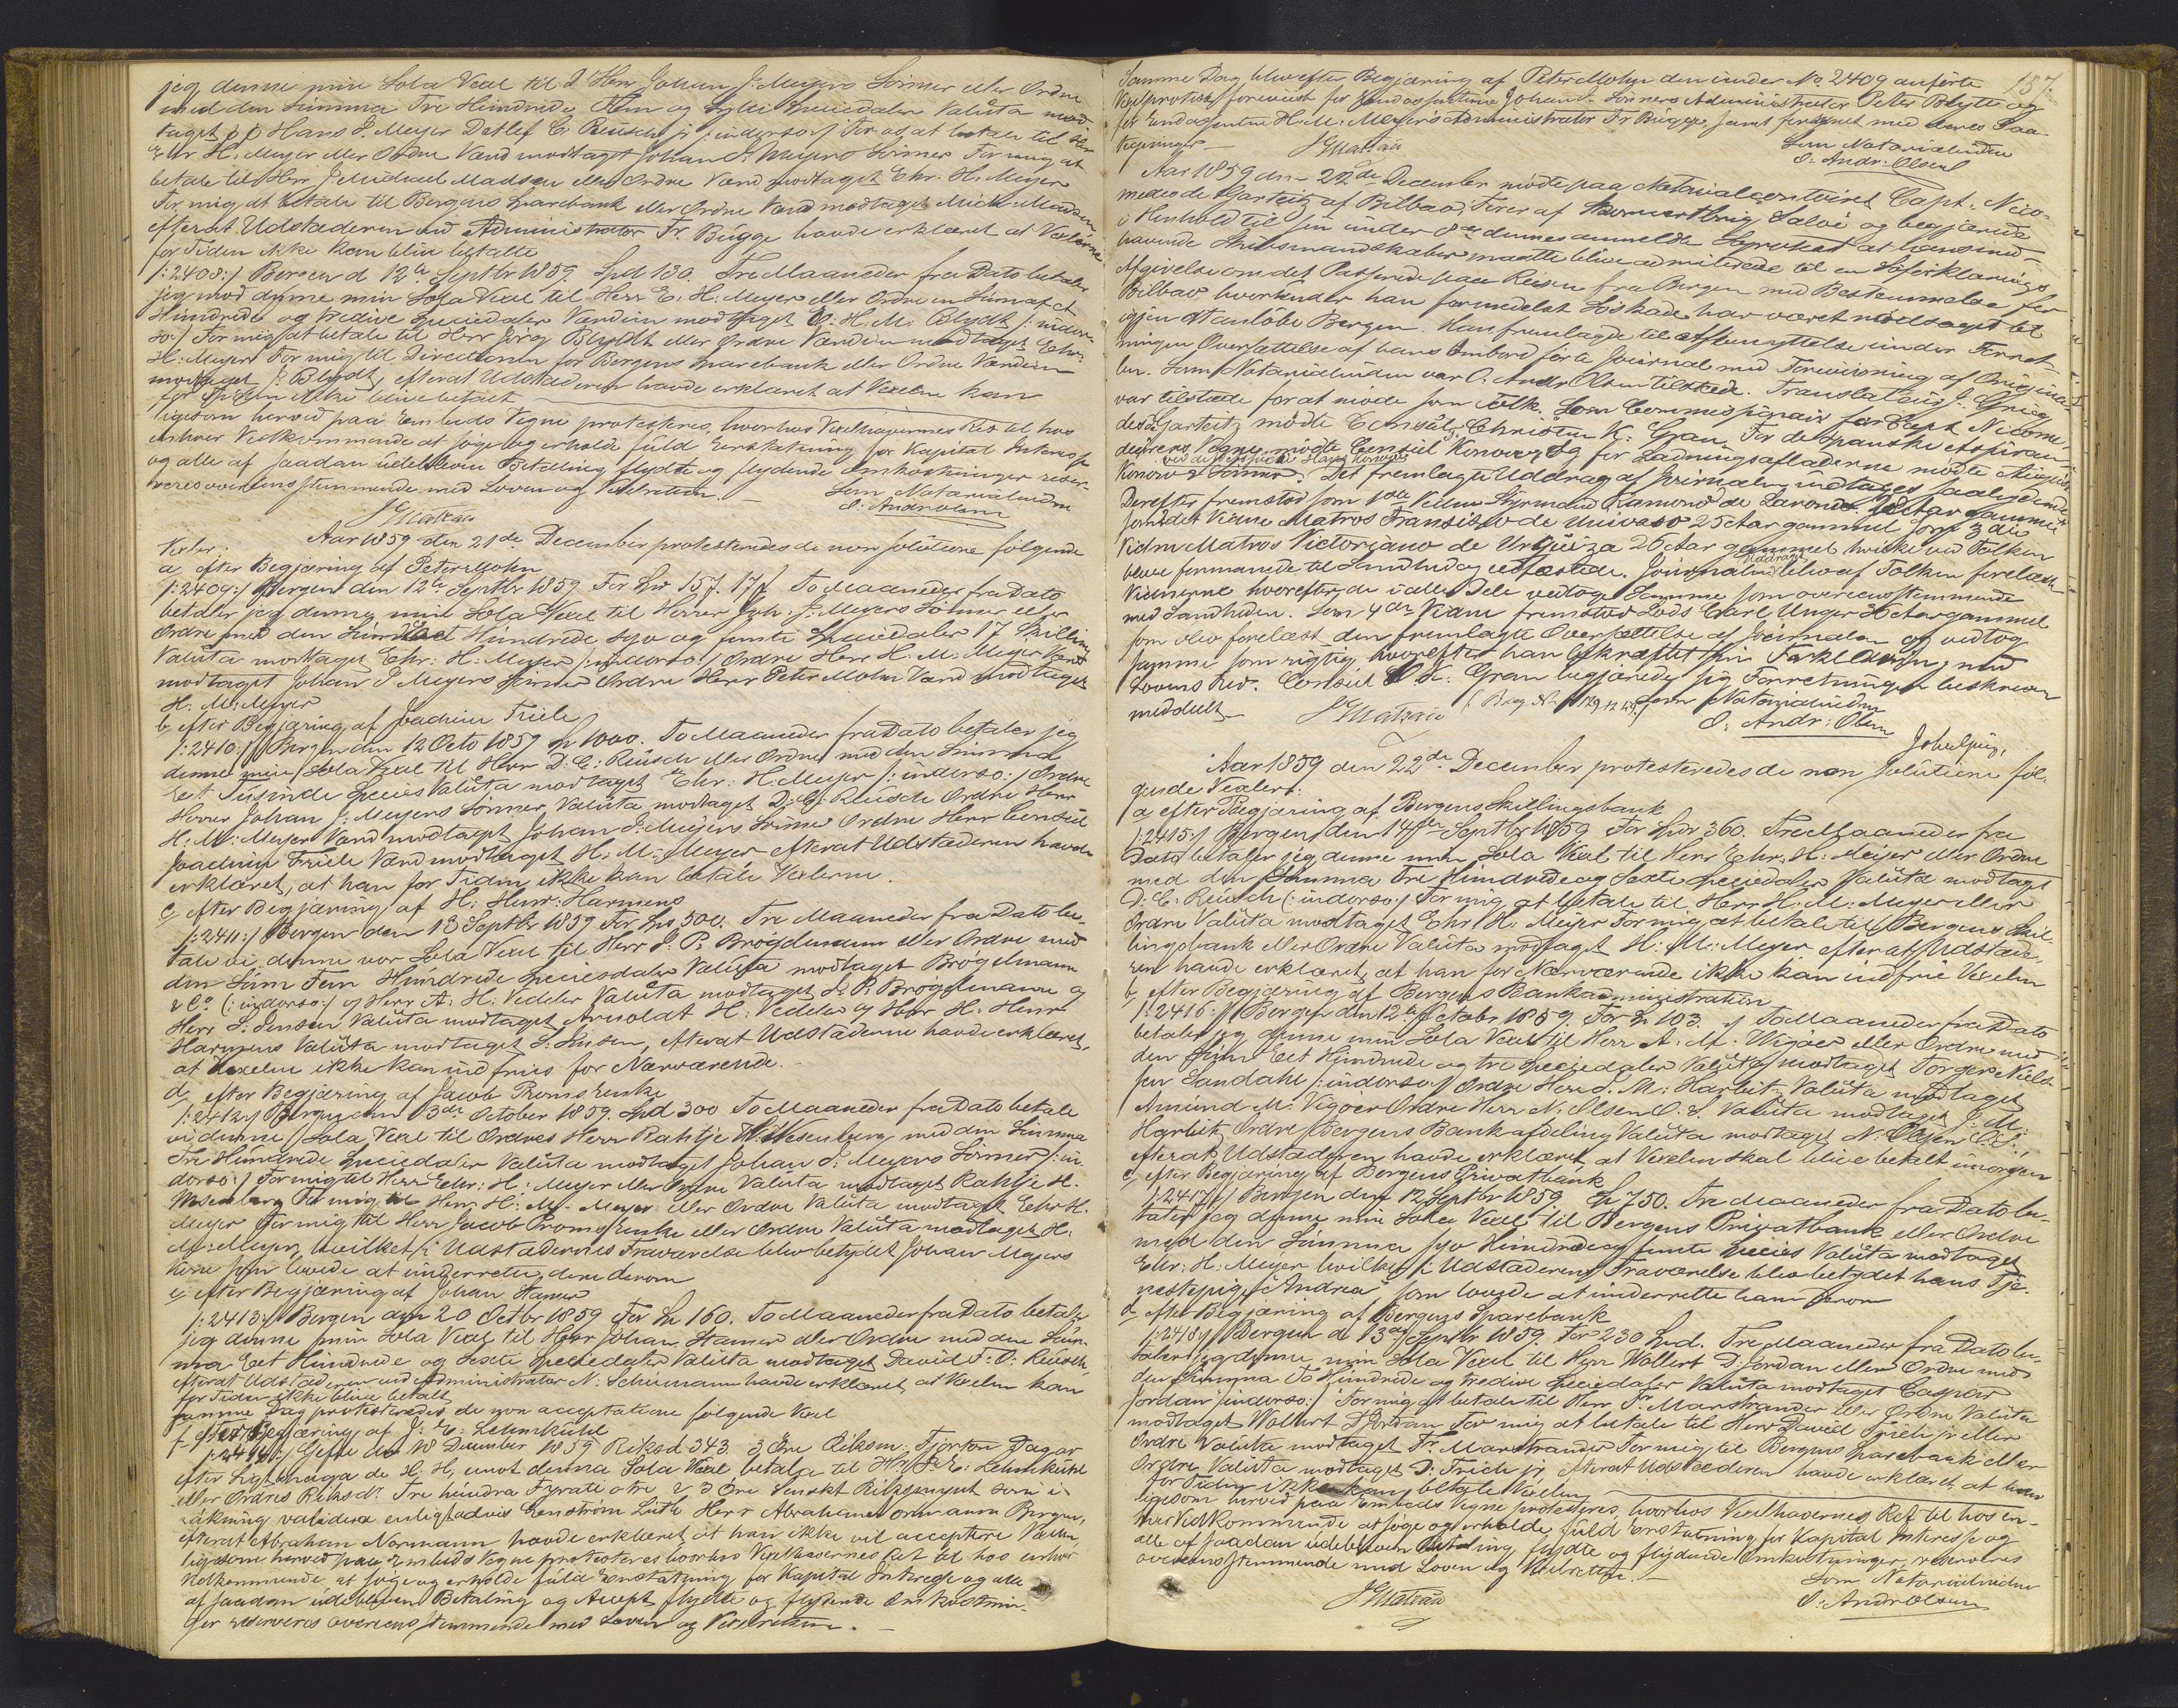 jeg denne min Sola Vexel til D'Herr Johan J. Meyers Sönner eller Ordre
med den Summa Tre Hundrede Fem og Sytti Speciedaler Valüta mod
taget Hans J. Meyer Detlef C. Reüsch jr /:indorso:/ For og at betale til Herr
Ehr. H. Meyer eller Ordre Værd modtaget Johan J. Meyers Sönner For mig at
betale til Herr J. Michael Madsen eller Ordre Værd modtaget Ehr. H. Meyer
For mig at betale til Bergens Sparebank eller Ordre Værd modtaget Mich: Madsen
efterat Udstederen ved Administrator Fr. Bügge havde erklæret at Vexlerne
for Tiden ikke kan blive betalte
/:2408:/ Bergen d 12te Septbr 1859. Spd 130. Tre Maaneder fra Dato betaler
jeg mod denne min Sola Vexel til Herr E. H. Meyer eller Ordre en Süm af et
Hündrede og tredive Speciedaler Værdien modtaget C. H. M. Blydt /:indor-
so:/ For mig at betale til Herr Jörg Blydt eller Ordre Værdien modtaget Ehr.
H: Meyer For mig til Directionen for Bergens Sparebank eller Ordre Værdien
modtaget J. Blydt, efterat Udstederen havde erklæret at Vexelen kan
for Tiden ikke blive betalt
ligesom herved paa Embeds Vegne protesteres, hvorhos Vexelhavernes Ret til hos
enhver Vedkommende at söge og erholde fuld Erstatning for Kapital Interesse
og alle af saadan udebleven Betaling flydte og flydende Omkostninger reser-
veres overeensstemmende med Loven og Vexelretten.
Som Notarialvidne
O. Andr Olsen
Aar 1859 den 21de December protesteredes de non solutione fölgende
Vexler:
a, efter Begjæring af Peter Mohn
/:2409:/ Bergen den 12te Septbr 1859 For Spd 157. 17 s. To Maaneder fra Dato
betaler jeg denne min Sola Vexel til Herrer Joh: J. Meyers Sönner eller
Ordre med den Summa Eet Hundrede syv og femti Speciedaler 17 Skilling
Valüta modtaget Ehr: H: Meyer /:indorso:/ Ordre Herr H: M: Meyer Værd
modtaget Johan J Meyers Sönner Ordre Herr Peter Mohn Værd modtaget
H. M. Meyer
b, efter Begjæring af Joachim Friele
/:2410:/ Bergen den 12 Octo 1859 Sp 1000. To Maaneder fra Dato betaler jeg
denne min Sola Vexel til Herr D. C. Reüsch eller Ordre med den Summa
Eet Tusinde Species Valüta modtaget Ehr: H. Meyer /:indorso:/ Ordre
Herrer Johan J. Meyers Sönner Valuta modtaget D. C. Reüsch Ordre Herr
H. M: Meyer Værd modtaget Johan J. Meyers Sönner Ordre Herr Consül
Joachim Friele Værd modtaget H. M. Meyer efterat Udstederen havde
erklæret, at han for Tiden ikke kan betale Vexlerne.
c, efter Begjæring af H: Henr: Harmens
/:2411:/ Bergen den 13 Septbr 1859 For Spd 500. Tre Maaneder fra Dato be-
tale vi denne vor Sola Vexel til Herr J. P. Brögelmann eller Ordre med
den Süm Fem Hundrede Speciesdaler Valüta modtaget Brögelmann
& Co /:indorso:/ og Herr A: H: Vedeler Valüta modtaget J. P. Brögelmann og
Herr S. Jensen Valüta modtaget Arnoldt H: Vedeler og Herr H. Henr
Harmens Valüta modtaget S. Jensen, efterat Udstederne havde erklæret,
at Vexelen ikke kan indfries for Nærværende.
d, efter Begjæring af Jacob Proms Enke
/:2412:/ Bergen den 13de October 1859. Spd 300 To Maaneder fra Dato betale
vi denne Sola Vexel til Ordres Herr Rahtje H. Wesenberg med den Summa
Tre Hundrede Speciedaler Valüta modtaget Johan J. Meyers Sönner /:in
dorso:/ For mig til Herr Ehr: H: Meyer eller Ordre Valuta modtaget Rahtje H.
Wesenberg For mig til Herr H: M: Meyer eller Ordre Valüta modtaget Ehr H.
Meyer For mig til Herr Jacob Proms Enke eller Ordre Valüta modtaget H.
M: Meyer, hvilket i Udstedernes Fraværelse blev betydet Johan Meyers
Kone som lovede at underrette dem derom
e, efter Begjæring af Johan Hamer
/:2413:/ Bergen den 20 Octbr 1859 For Sp 160. To Maaneder fra Dato betaler
jeg denne min Sola Vexel til Herr Johan Hamer eller Ordre med den Süm-
ma Eet Hundrede og sexti Speciedaler Valüta modtaget David J. O. Reüsch
efterat Udstederen ved Administrator N. Schümann havde erklæret, at Vexelen kan
for Tiden ikke blive betalt
samme Dag protesteredes de non acceptatione fölgende Vexel
f, efter Begjæring af J. E. Lehmkühl
/:2414:/ Gefle den 10 December 1859 Riksd 343. 3 Öre Riksm: Fjorton Dagar
efter Sigt behaga de H. H, emot denna Sola Vexel betala til Hr J. E. Lehmkühl
eller Ordres Riksdr Tre hundra Fyratiotre & 3 Öre Svenskt Riksmynt som i
räkning valideras enligt advis Enström Luth Herr Abraham Normann Bergen,
efterat Abraham Normann havde erklæret at han ikke vil acceptere Vexelen
ligesom herved paa Embeds Vegne protesteres hvorhos Vexelhavernes Ret til hos enhver
Vedkommende, at söge og erholde fuld Erstatning for Kapital Interesse og alle
af saadan udebleven Betaling og Accept flydte og flydende Omkostnin-
ger reserveres overeensstemmende med Loven og Vexelretten.
157.
Samme Dag blev efter Begjæring af Peter Mohn den under No 2409 anförte
Vexelprotest foreviist for Endossentene Johan J. Sönners Administrator Peter Blytt og
for Endossenten H. M: Meyers Administrator Fr Bügge, samt forsynet med deres Paa-
tegninger.
Som Notarialvidne
O. Andr: Olsen
Aar 1859 den 22de December mödte paa Notarialcontoiret Capt. Nico-
medes de Gasteitz af Bilbao, Förer af Skonnertbrig Salvé og begjærede
i Henhold til sin under 8de dennes anmeldte Söprotest at han med
havende Skibsmandskaber maatte blive admitterede til en Söforklarings
Afgivelse om det Passerede paa Reisen fra Bergen med Bestemmelse for
Bilbao hvorunder han formedelst Söskade har været nödsaget til
igjen at anlöbe Bergen. Han fremlagde til Afbenyttelse under Forret-
ningen Oversættelse af hans Ombord förte Journal med Forevisning af Origina-
len. Som Notarialvidne var O. Andr Olsen tilstede. Translateur J. Grieg
var tilstede for at möde som Tolk. Som Commissionair for Capt Nicome-
des de Gasteitz mödte Consül Christen K: Gran. For de Spanske Assüran-
deürers Vegne mödte Consül Konow og for Ladningsafladerne mödte August
Konow & Sönner ved deres Fuldmægtig Konow. Det fremlagte Uddrag af Journalen indtages saalydende
Derefter fremstod som 1ste Vidne Styrmand Ramond de Larond 28 Aar gammel
som 2det Vidne Matros Fransisko de Univaso 25 Aar gammel som 3die
Vidne Matros Victoriano de Urgüiza 26 Aar gammel hvilke ved Tolken
bleve formanede til Sandhed og edfæstede. Journalens Uddrag blev af Tolken forelæst
Vidnerne hvorefter de i alle Dele vedtog Samme som overeensstemmende
med Sandheden. Som 4de Vidne fremstod Lods Carl Unger 36 Aar gammel
som blev forelæst den fremlagte Oversættelse af Journalen og vedtog
samme som rigtig, hvorefter han bekræftet sin Forklaring, med
Lovens Ed. Consül C. K. Gran begjærede sig Forretningen beskreven
meddeelt.
Som Notarialvidne
O: Andr: Olsen
Aar 1859 den 22de December protesteredes de non solütione föl-
gende Vexler:
a efter Begjæring af Bergens Skillingsbank
/:2415:/ Bergen den 14de Septbr 1859 For Spdr 360. Tre Maaneder fra
Dato betaler jeg denne min Sola Vexel til Herr Ehr. H: Meijer eller Ordre
med den Summa Tre Hundrede og Sexti Speciedaler Valüta modtaget
D. C. Reüsch /:indorso:/ For mig at betale til Herr H. M. Meyer eller
Ordre Valuta modtaget Ehr H. Meyer For mig at betale til Bergens Skil-
lingsbank eller Ordre Valüta modtaget H: M: Meyer efterat Udstede-
ren havde erklæret, at han for Nærværende ikke kan indfrie Vexelen
b, efter Begjæring af Bergens Bankadministration
/:2416:/ Bergen den 12te Octobr 1859. For Sp 103. To Maaneder fra Dato
betaler jeg denne min Sola Vexel til Herr A. M. Vigöer eller Ordre med
den Süm Eet Hundrede og tre Speciedaler Valüta modtaget Torger Niel-
sen Sandahl /:indorso:/ Ordre Herr J. M: Harbitz Valüta modtaget
Amund M: Vigöer Ordre Herr N. Olsen O. S. Valüta modtaget J. M.
Harbitz Ordre Bergens Bankafdeling Valüta modtaget N. Olsen O. S.,
efterat Udstederen havde erklæret, at Vexelen skal blive betalt imorgen
c, efter Begjæring af Bergens Privatbank
/:2417:/ Bergen den 12 Septbr 1859. Sp 750. Tre Maaneder fra Dato be-
taler jeg denne min Sola Vexel til Bergens Privatbank eller Ordre
med den Summa syv Hundrede og femti Species Valüta modtaget
Ehr: H. Meyer hvilket i Udstederens Fraværelse blev betydet hans Tje-
nestepige Andrea som lovede at underrette ham herom
d efter Begjæring af Bergens Sparebank
/:2418:/ Bergen d 13de Septbr 1859. For 230 Spd. Tre Maaneder fra Dato be-
taler jeg denne min Sola Vexel til Herr Wollert D. Jordan eller Ordre med
den Summa To Hundrede og tredive Speciedaler Valüta modtaget Casper
Jordan /:indorso:/ For mig at betale til Herr Fr. Marstrander eller Ordre Valüta
modtaget Wollert D Jordan For mig at betale til Herr David Friele jr eller
Ordre Valuta modtaget Fr. Marstrander For mig til Bergens Sparebank eller
Ordre Valüta modtaget D. Friele jr, efterat Udstederen havde erklæret, at han
for Tiden ikke kan betale Vexelen
ligesom herved paa Embeds Vegne protesteres, hvorhos Vexelhavernes Ret til hos en-
hver Vedkommende at söge og erholde fuld Erstatning for Kapital Interesse og
alle af saadan udebleven Betaling flydte og flydende Omkostninger, reserveres
overeensstemmende med Loven og Vexelretten.
Som Notarialvidne
O. Andr Olsen